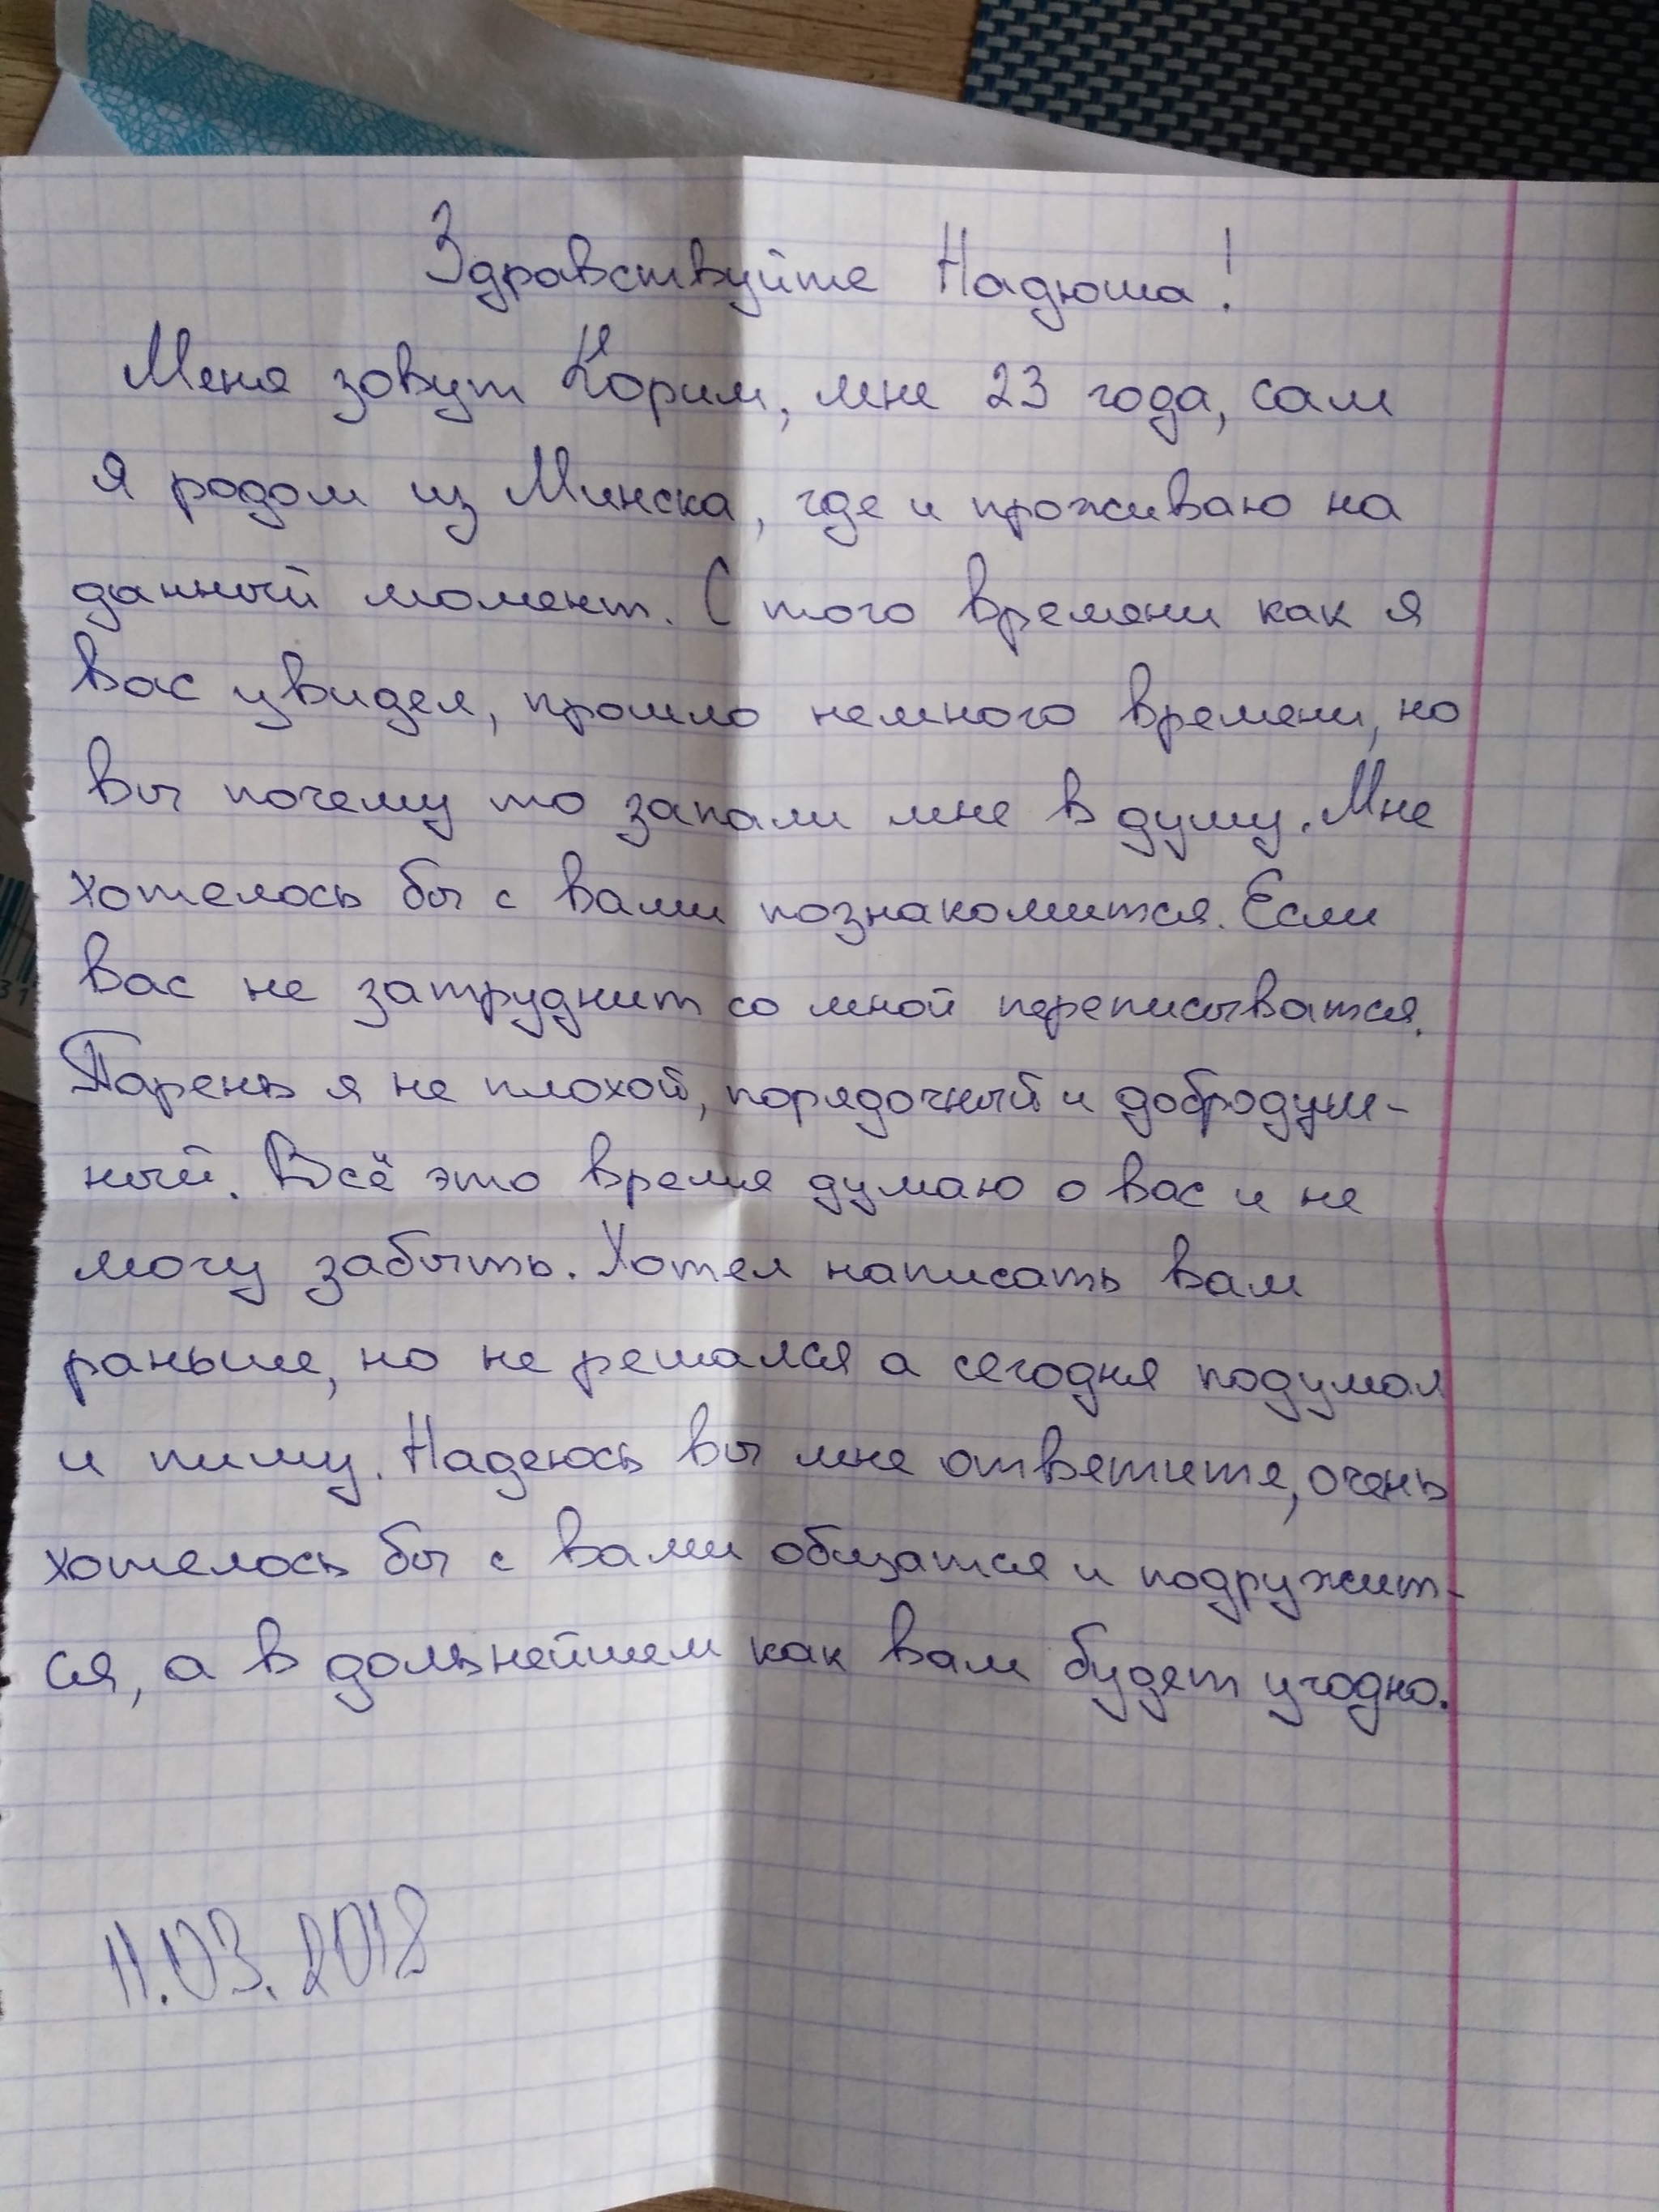 Здравствуйте Надюша!
Меня зовут Карим, мне 23 года, сам
я родом из Минска, где и проживаю на
данный момент. С того времени как я
вас увидел, прошло немного времени, но
вы почему то запали мне в думу. Мне
хотелось бы с вами познакомится. Если
вас не затруднит со мной переписыватся.
Парень я не плохой, порядочный и добродуш-
ный. Всё это время думаю о вас и не
могу забыть. Хотел написать вам
раньше, но не решался а сегодня подумал
и пишу. Надеюсь вы мне ответите, очень
хотелось бы с вами общатся и подружит-
ся, а в дальнейшем как вам будет угодно.
11.03.2018
31